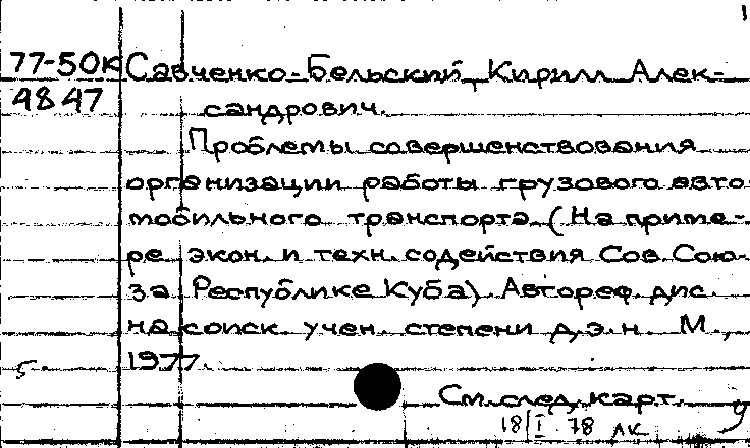 1
77-50к Савченко-Бельский, Кирилл Алек-
4847 сандрович.
Проблемы совершенствования
организации работы грузового авто-
мобильного транспорта. (На приме-
ре экон. и техн. содействия Сов. Сою-
за Республике Куба). Автореф. дис.
на соиск. учен. степени д.э.н. М.,
1977.
5
См. след. карт.
18/I 78 лк у